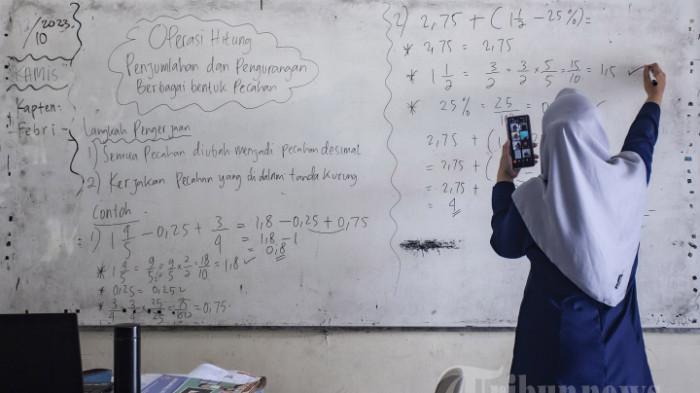 /2023.
10
KAMIS
Kapten:
Febri -
Operasi Hitung
Penjumlahan dan Pengurangan
Berbagai bentuk Pecahan
Langkah Pengerjaan
1) Semua Pecahan diubah menjadi pecahan desimal
2) Kerjakan Pecahan yang di dalam tanda kurung
Contoh
1) 1 4/5 - 0,25 + 3/4 = 1,8 - 0,25 + 0,75
= 1,8 - 1
= 0,8
* 1 4/5 = 9/5 = 9/5 x 2/2 = 18/10 = 1,8 ✓
* 0,25 = 0,25 ✓
* 3/4 = 3/4 x 25/25 = 75/100 = 0,75
2) 2,75 + (1 1/2 - 25%) =
* 2,75 = 2,75
* 1 1/2 = 3/2 = 3/2 x 5/5 = 15/10 = 1,5 ✓
* 25% = 25
2,75 + (
= 2,75 + (
= 2,75 +
= 4
Tribunnews